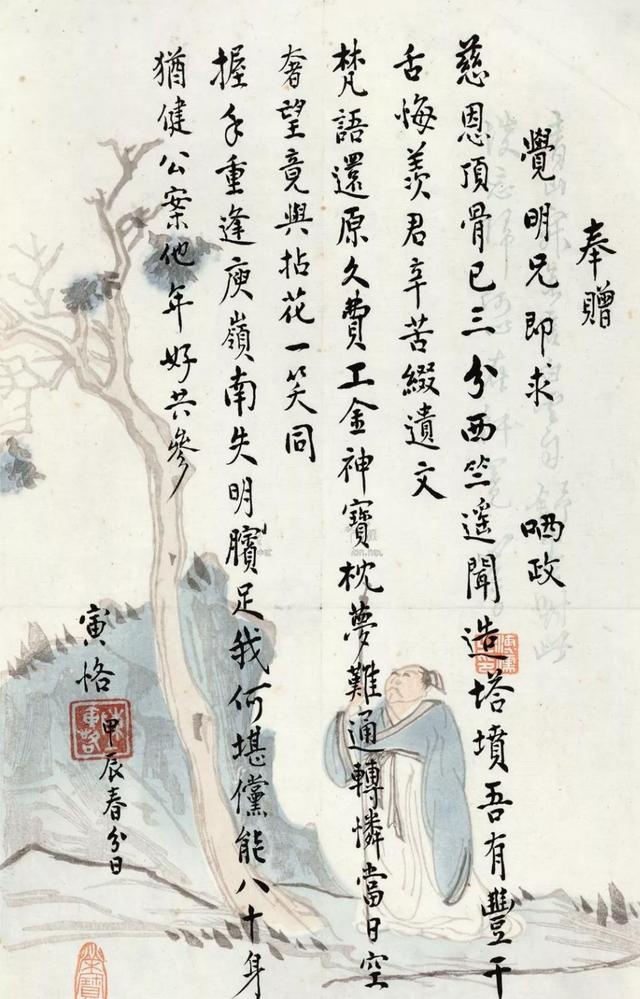 奉贈
覺明兄即求 哂政
慈恩頂骨已三分西竺遥聞造塔墳吾有豐干
舌悔羨君辛苦綴遺文
梵語還原久費工金神寶枕夢難通轉憐當日空
奢望竟與拈花一笑同
握手重逢庾嶺南失明臏足我何堪儻能八十身
猶健公案他年好共參
寅恪
甲辰春分日